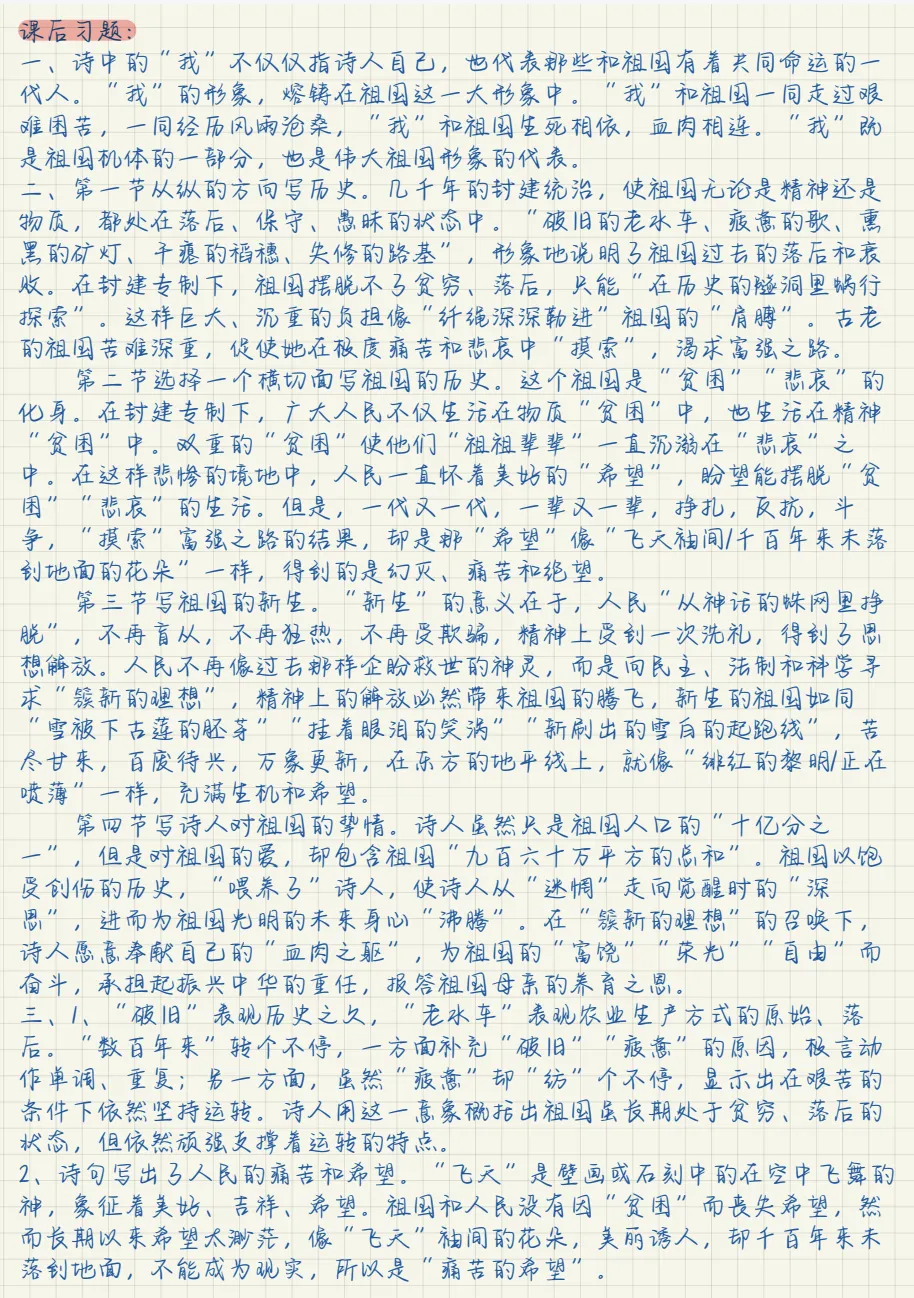 课后习题:
一、诗中的“我”不仅仅指诗人自己，也代表那些和祖国有着共同命运的一
代人。“我”的形象，熔铸在祖国这一大形象中。“我”和祖国一同走过艰
难困苦，一同经历风雨沧桑，“我”和祖国生死相依，血肉相连。“我”既
是祖国机体的一部分，也是伟大祖国形象的代表。
二、第一节从纵的方向写历史。几千年的封建统治，使祖国无论是精神还是
物质，都处在落后、保守、愚昧的状态中。“破旧的老水车、疲惫的歌、熏
黑的矿灯、干瘪的稻穗、失修的路基”，形象地说明了祖国过去的落后和衰
败。在封建专制下，祖国摆脱不了贫穷、落后，只能“在历史的隧洞里蜗行
探索”。这样巨大、沉重的负担像“纤绳深深勒进”祖国的“肩膊”。古老
的祖国苦难深重，促使她在极度痛苦和悲哀中“摸索”，渴求富强之路。
第二节选择一个横切面写祖国的历史。这个祖国是“贫困”“悲哀”的
化身。在封建专制下，广大人民不仅生活在物质“贫困”中，也生活在精神
“贫困”中。双重的“贫困”使他们“祖祖辈辈”一直沉溺在“悲哀”之
中。在这样悲惨的境地中，人民一直怀着美好的“希望”，盼望能摆脱“贫
困”“悲哀”的生活。但是，一代又一代，一辈又一辈，挣扎，反抗，斗
争，“摸索”富强之路的结果，却是那“希望”像“飞天袖间/千百年来未落
到地面的花朵”一样，得到的是幻灭、痛苦和绝望。
第三节写祖国的新生。“新生”的意义在于，人民“从神话的蛛网里挣
脱”，不再盲从，不再狂热，不再受欺骗，精神上受到一次洗礼，得到了思
想解放。人民不再像过去那样企盼救世的神灵，而是向民主、法制和科学寻
求“簇新的理想”，精神上的解放必然带来祖国的腾飞，新生的祖国如同
“雪被下古莲的胚芽”“挂着眼泪的笑涡”“新刷出的雪白的起跑线”，苦
尽甘来，百废待兴，万象更新，在东方的地平线上，就像“绯红的黎明/正在
喷薄”一样，充满生机和希望。
第四节写诗人对祖国的挚情。诗人虽然只是祖国人口的“十亿分之
一”，但是对祖国的爱，却包含祖国“九百六十万平方的总和”。祖国以饱
受创伤的历史，“喂养了”诗人，使诗人从“迷惘”走向觉醒时的“深
思”，进而为祖国光明的未来身心“沸腾”。在“簇新的理想”的召唤下，
诗人愿意奉献自己的“血肉之躯”，为祖国的“富饶”“荣光”“自由”而
奋斗，承担起振兴中华的重任，报答祖国母亲的养育之恩。
三、1、“破旧”表现历史之久，“老水车”表现农业生产方式的原始、落
后。“数百年来”转个不停，一方面补充“破旧”“疲惫”的原因，极言动
作单调、重复；另一方面，虽然“疲惫”却“纺”个不停，显示出在艰苦的
条件下依然坚持运转。诗人用这一意象概括出祖国虽长期处于贫穷、落后的
状态，但依然顽强支撑着运转的特点。
2、诗句写出了人民的痛苦和希望。“飞天”是壁画或石刻中的在空中飞舞的
神，象征着美好、吉祥、希望。祖国和人民没有因“贫困”而丧失希望，然
而长期以来希望太渺茫，像“飞天”袖间的花朵，美丽诱人，却千百年来未
落到地面，不能成为现实，所以是“痛苦的希望”。